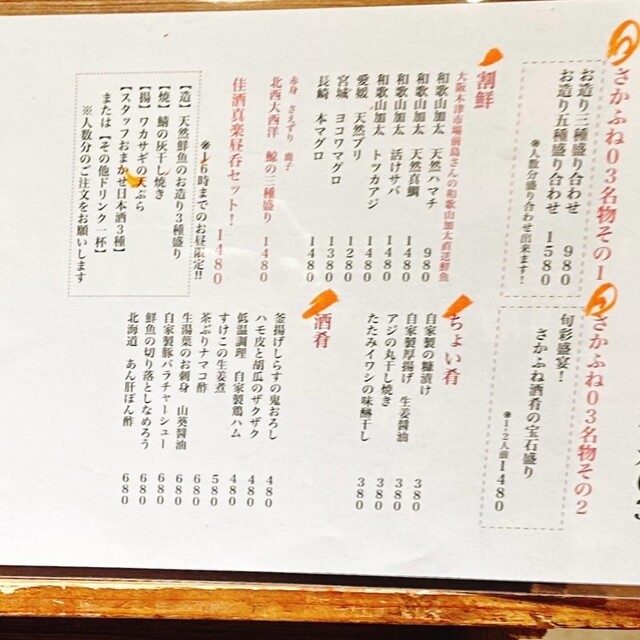 さかふね03名物その1
お造り三種盛り合わせ 980
お造り五種盛り合わせ 1580
※人数分盛り合わせ出来ます!
割鮮
大阪木津市場前島さんの和歌山加太直送鮮魚
和歌山加太 天然ハマチ 980
和歌山加太 天然真鯛 1480
和歌山加太 活けサバ 1480
和歌山加太 トツカアジ 1480
愛媛 天然ブリ 1480
宮城 ヨコワマグロ 1280
長崎 本マグロ 1380
1480
赤身 さえずり 鹿子
北西大西洋 鯨の三種盛り 1480
佳酒真楽昼呑セット! 1480
※16時までのお昼限定!!
【造】天然鮮魚のお造り3種盛り
【焼】鯖の灰干し焼き
【揚】ワカサギの天ぷら
【スタッフおまかせ日本酒3種】
または【その他ドリンク一杯】
※人数分のご注文をお願いします
さかふね03名物その2
旬彩盛宴!
さかふね酒肴の宝石盛り
※1・2人前1480
ちょい肴
自家製の糠漬け 380
自家製厚揚げ 生姜醤油 380
アジの丸干し焼き 380
たたみイワシの味醂干し 380
酒肴
釜揚げしらすの鬼おろし 480
ハモ皮と胡瓜のザクザク 480
低温調理 自家製鶏ハム 480
すけこの生姜煮 480
茶ぶりナマコ酢 580
生湯葉のお刺身 山葵醤油 680
自家製豚バラチャーシュー 680
鮮魚の切り落としなめろう 680
北海道 あん肝ぽん酢 680